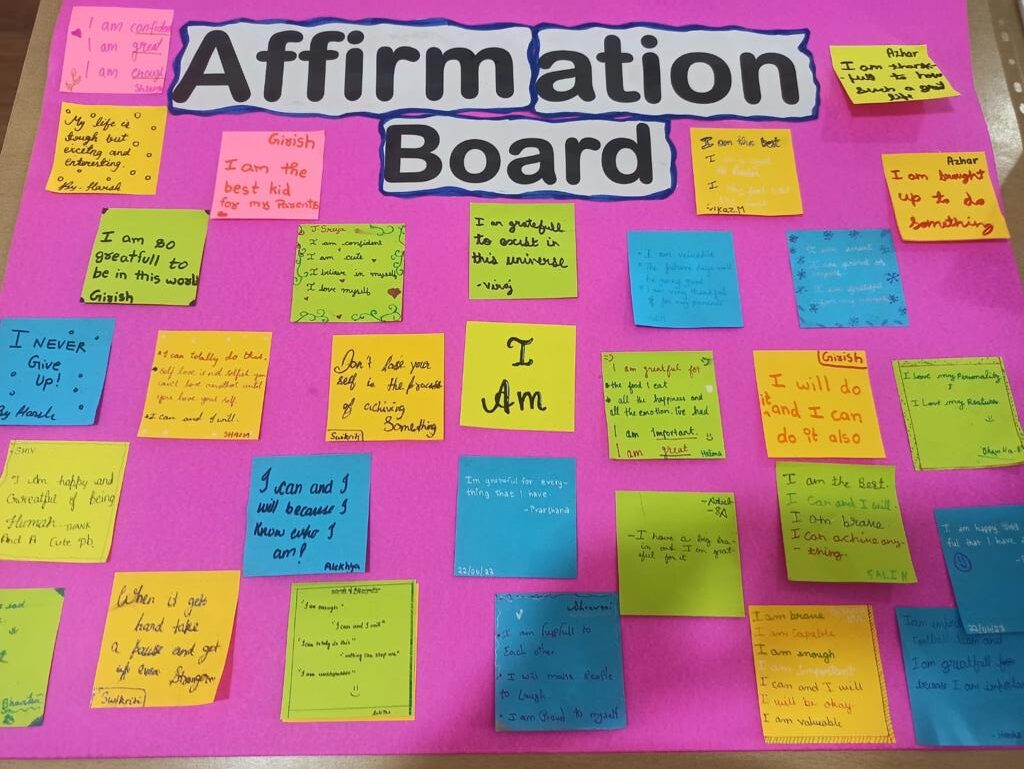 Affirmation
Board
I am confident
I am great
I am enough
Azhar
I am thank-
full to have
such a good
life
My life is
tough but
exceting and
enteresting.
By- Harsh
Girish
I am the
best kid
for my Parents
I am the best
I
I
Vikaz.M
Azhar
I am brought
up to do
something
I am so
greatfull to
be in this world
Girish
J. Sreya
I am confident
I am cute
I believe in myself
I love myself
I am gratefull
to exist in
this universe
- Viraj
I am valuable
I NEVER
Give
Up!
By Harsh
I can totally do this.
self love is not selfish you
can't love another until
you love your self.
I can and I will.
Don't lose your
self in the process
of achiving
Something
Swikriti
I
Am
I am greatful for
the food I eat
all the happiness and
all the emotion. I've had
I am important.
I am great
Girish
I will do
it and I can
do it also
I Love my Personality
I Love my Realness
SHIV
I am happy and
Greatful of being
Human. THANK
And A Cute pb.
I can and I
will because I
Know who I
am!
Alekhya
Im grateful for every-
thing that I have
- Prarthana
22/06/23
- I have a big bra-
in and I am grat-
eful for it
I am the Best.
I can and I will.
I am brave
I can achive any-
- thing.
I am happy and
ful that I have
22/06/23
When it gets
hard take
a pause and get
up even Stronger
Swikriti
"I am enough"
"I can and I will"
"I can totally do this"
"nothing can stop me"
Shravani
I am helpfull to
Each other.
I will make People
to Laugh.
I am Proud to myself
I am brave
I am capable
I am enough
I am important
I can and I will
I will be okay
I am valuable
I am greatfull
because I am important